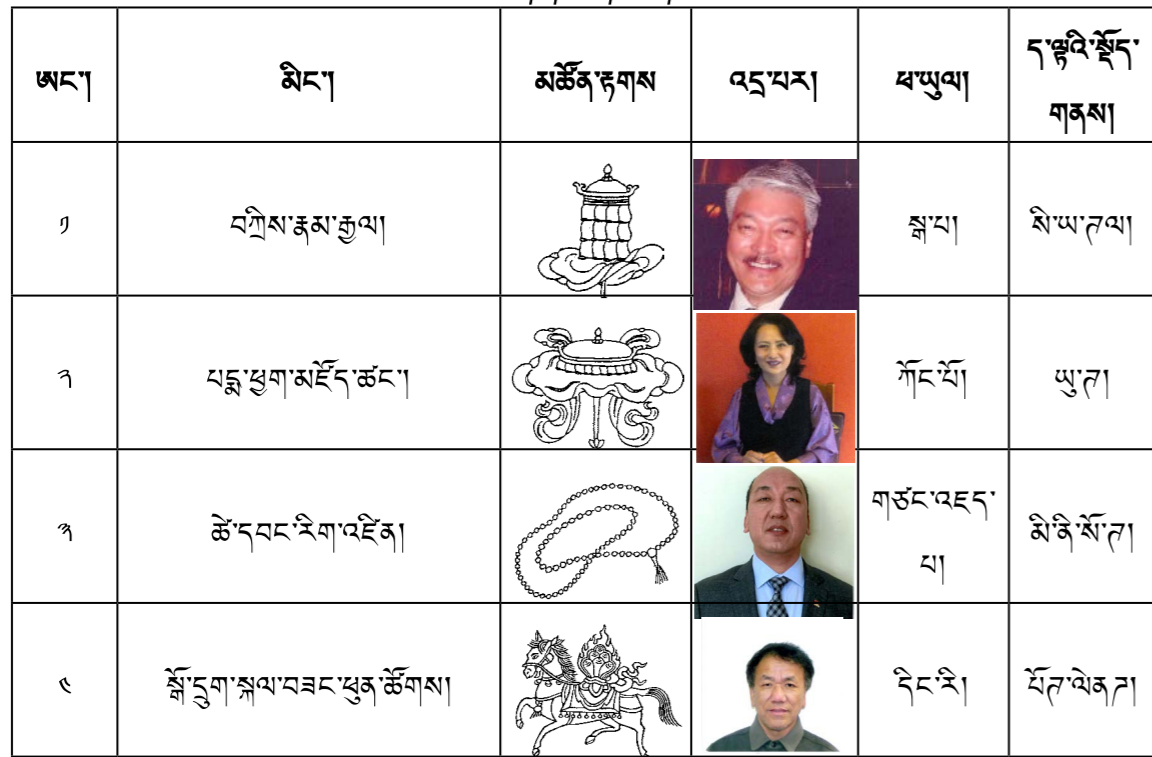 ཨང་།
མིང་།
མཚོན་རྟགས
འདྲ་པར།
ཕ་ཡུལ།
ད་ལྟའི་སྡོད་
གནས།
༡
བཀྲིས་རྣམ་རྒྱལ།
སྒ་པ།
སི་ཡ་ཊལ།
༢
པདྨ་ཕྱག་མཛོད་ཚང་།
ཀོང་པོ།
ཡུ་ཊ།
༣
ཚེ་དབང་རིག་འཛིན།
གཙང་འཇད་
པ།
མི་ནི་སོ་ཊ།
༤
སྒོ་དྲུག་སྐལ་བཟང་ཕུན་ཚོགས།
དིང་རི།
པོཊ་ལེནྜ།